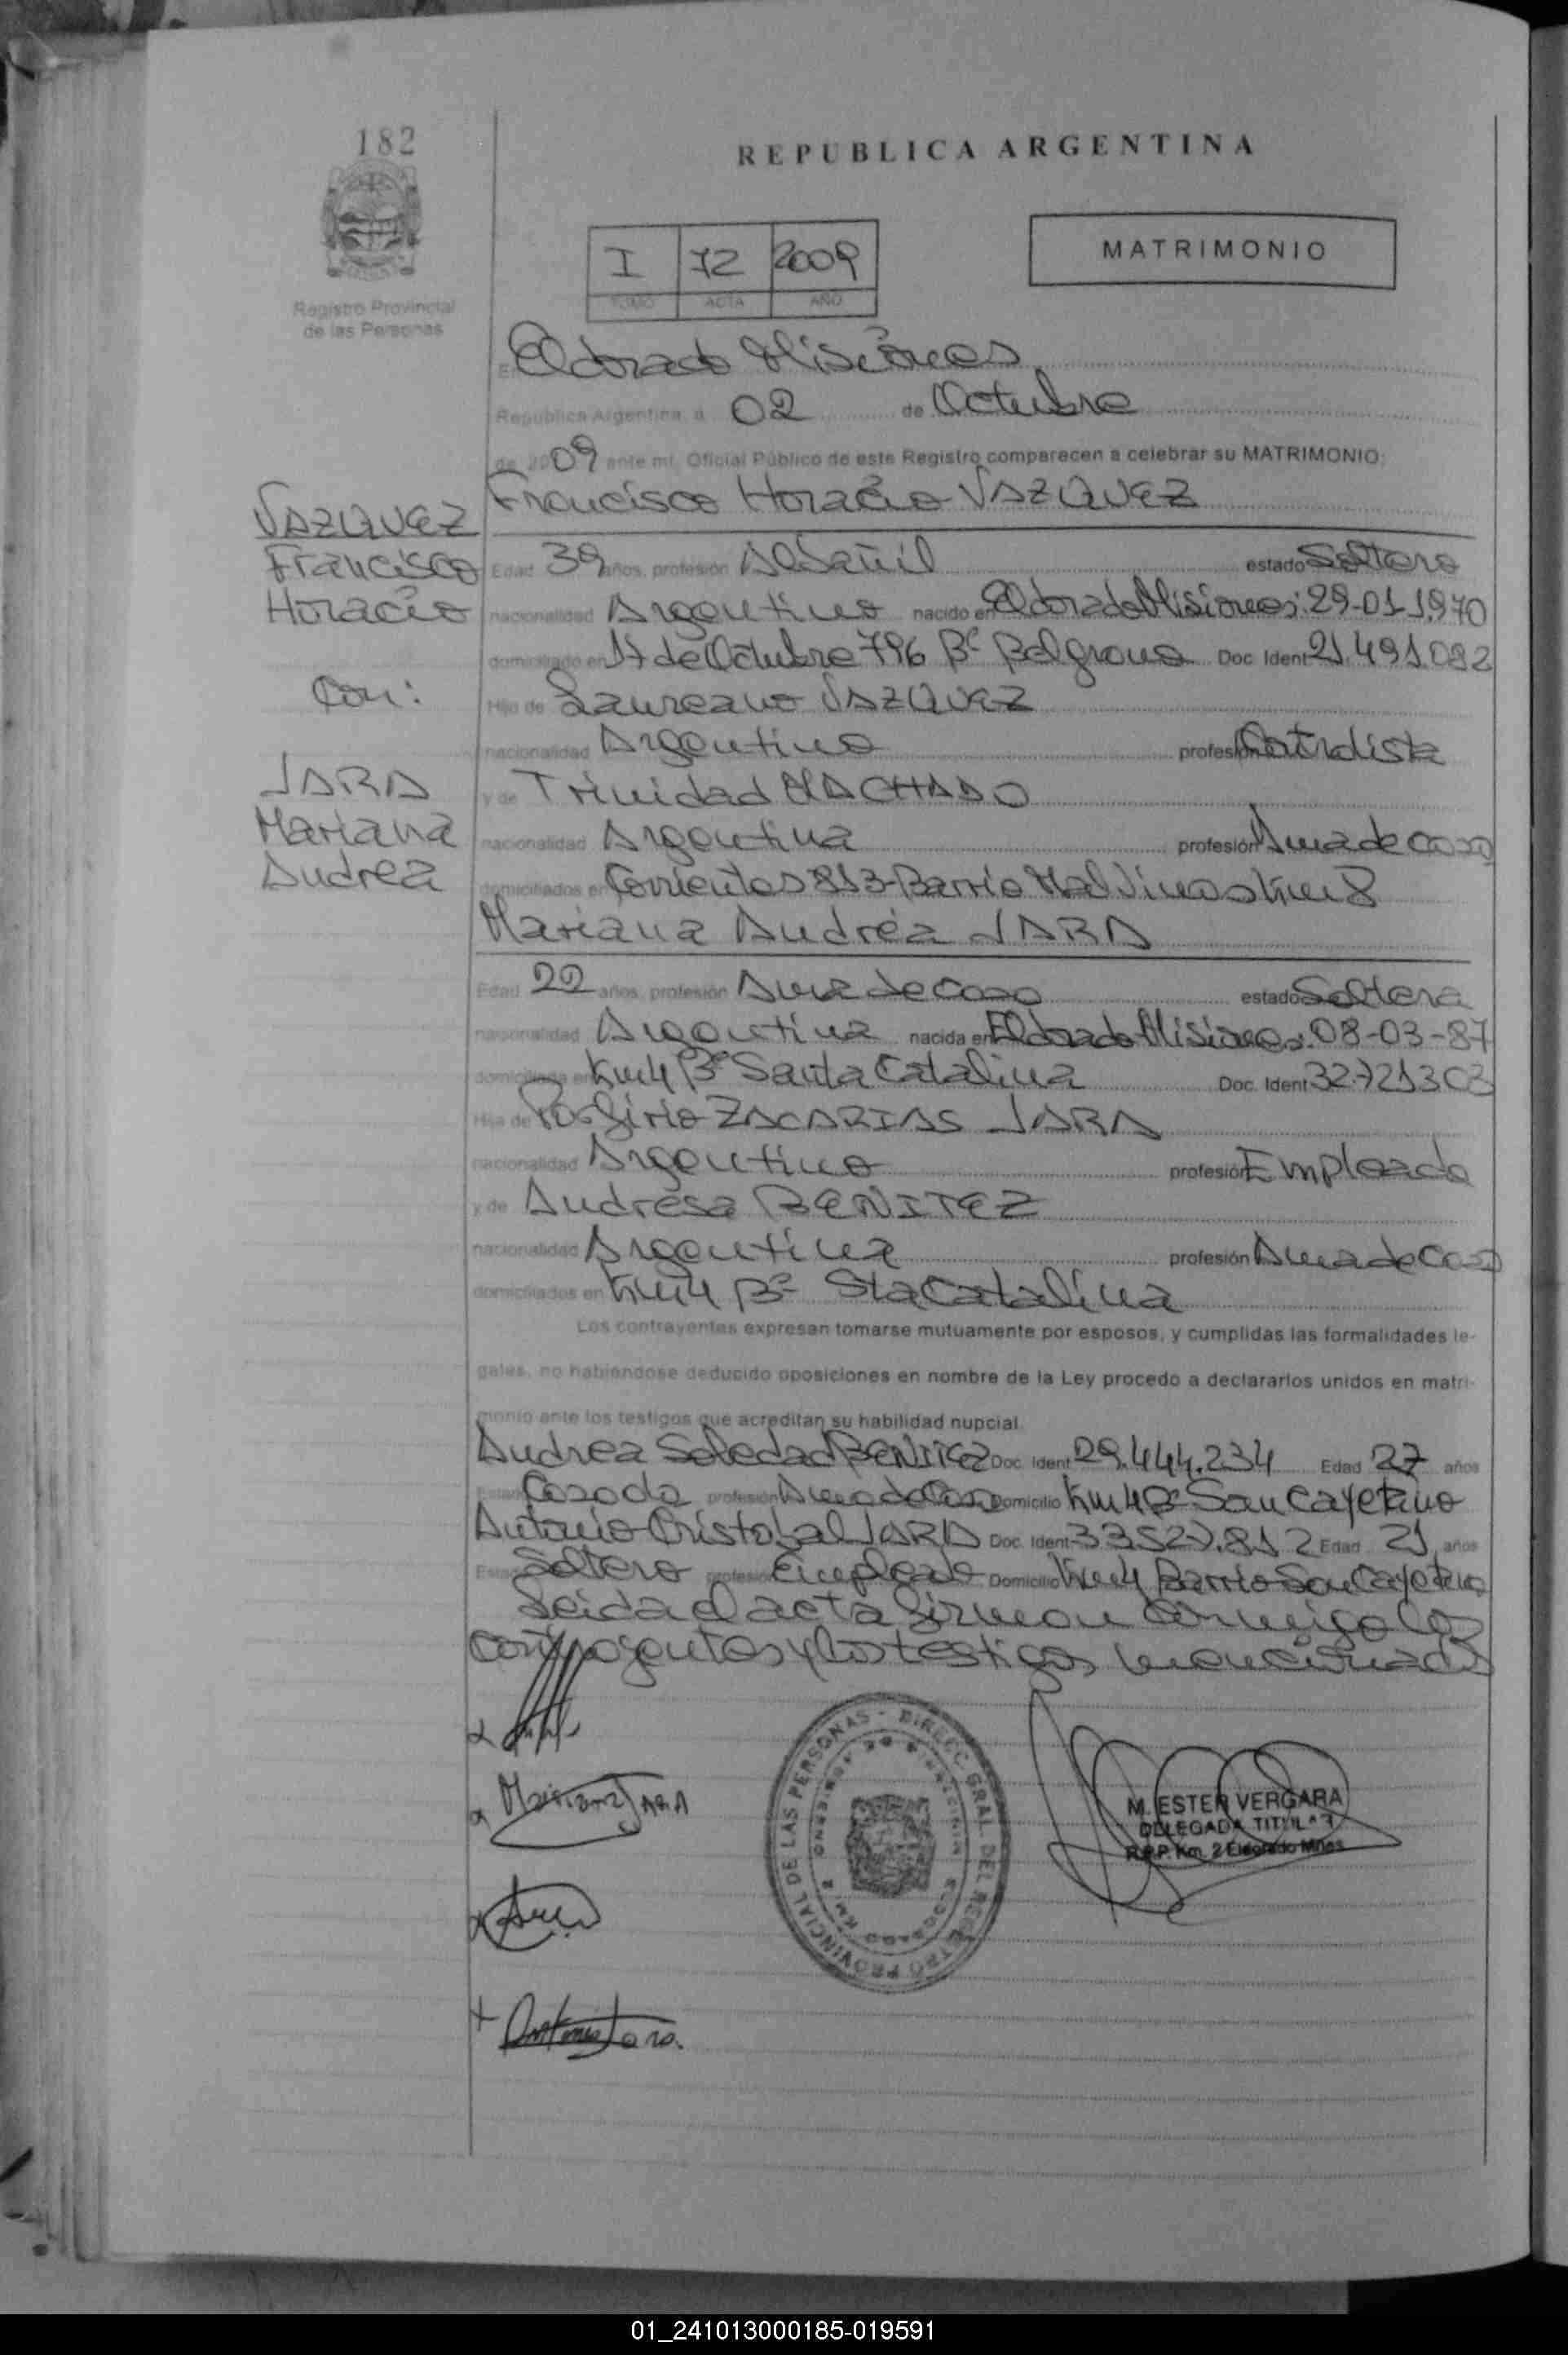 182
REPUBLICA ARGENTINA
I 72 2009
TOMO ACTA AÑO
MATRIMONIO
Registro Provincial
de las Personas
En Eldorado Misiones
Republica Argentina, a 02 de Octubre
de 2009 ante mi, Oficial Público de este Registro comparecen a celebrar su MATRIMONIO:
Francisco Horacio VAZQUEZ
VAZQUEZ
Francisco
Horacio
Con:
JARA
Mariana
Andrea
Edad 39 años, profesión Albañil estado Soltero
nacionalidad Argentino nacido en Eldorado Misiones: 29-01-1970
domiciliado en 17 de Octubre 796 Bº Belgrano Doc. Ident 21.491.092
Hijo de Laureano VAZQUEZ
nacionalidad Argentino profesión
y de Trinidad MACHADO
nacionalidad Argentina profesión Ama de casa
domiciliados en Corrientes 813-Barrio Malvinas Km 8
Mariana Andrea JARA
Edad 22 años, profesión Ama de Casa estado Soltera
nacionalidad Argentina nacida en Eldorado Misiones: 08-03-87
domiciliada en Km 4 Bº Santa Catalina Doc. Ident 32.721303
Hija de Porfirio ZACARIAS JARA
nacionalidad Argentino profesión Empleado
y de Andresa BENITEZ
nacionalidad Argentina profesión Ama de Casa
domiciliados en Km 4 Bº Sta Catalina
Los contrayentes expresan tomarse mutuamente por esposos, y cumplidas las formalidades le-
gales, no habiéndose deducido oposiciones en nombre de la Ley procedo a declararlos unidos en matri-
monio ante los testigos que acreditan su habilidad nupcial.
Andrea Soledad BENITEZ Doc. Ident 29.444.234 Edad 27 años
Estado Casada profesión Ama de Casa Domicilio Km 4 Bº San Cayetano
Antonio Cristobal JARA Doc. Ident 33.527.812 Edad 21 años
Estado Soltero profesión Empleado Domicilio Km 4 Barrio San Cayetano
Leida el acta firman conmigo los
contrayentes y los testigos mencionados
Mariana JARA
Antonio Jara.
DIRECC. GRAL. DEL REGISTRO PROVINCIAL DE LAS PERSONAS
M. ESTER VERGARA
DELEGADA TITULAR
R.P.P. Km. 2 Eldorado Mnes
01_241013000185-019591